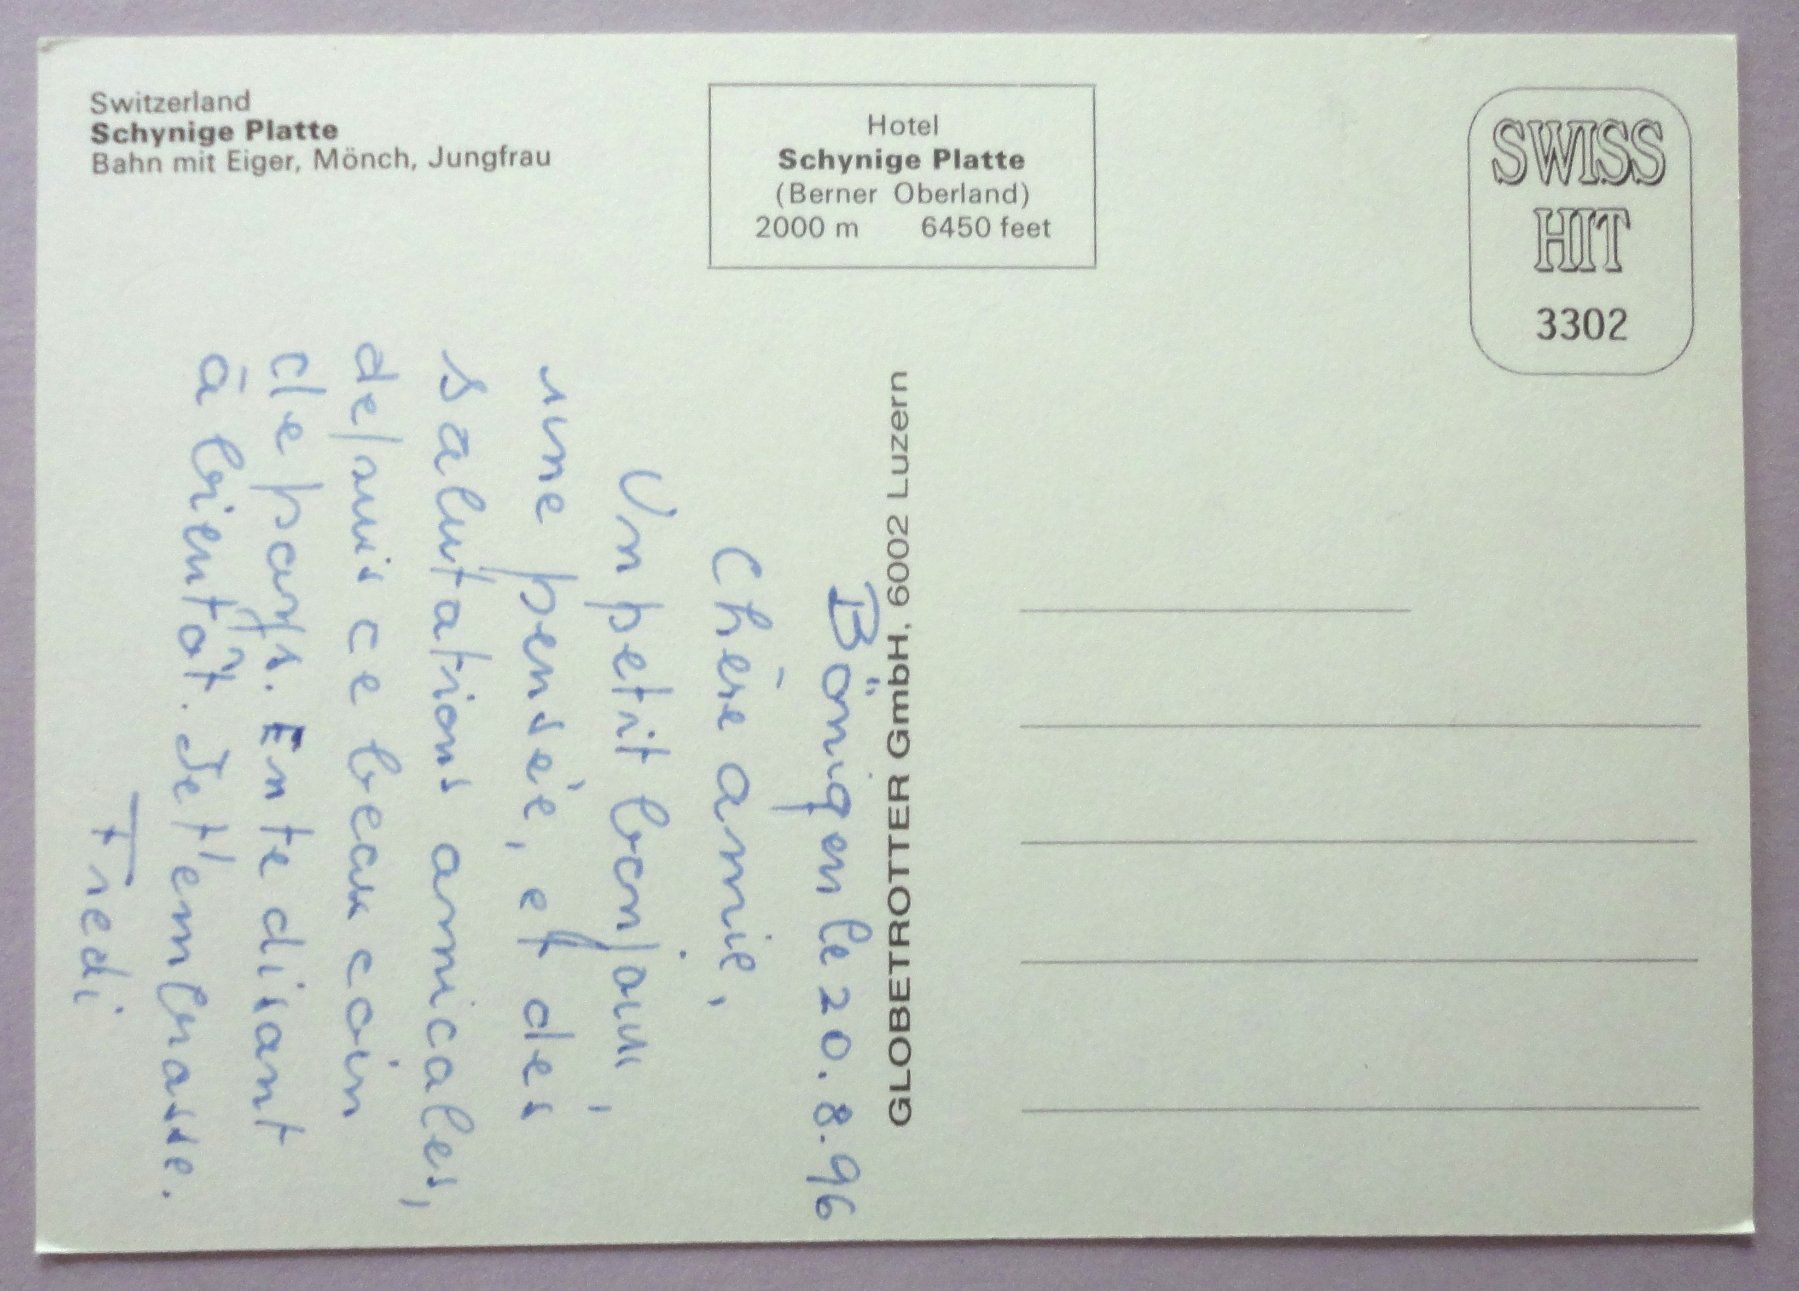 Switzerland
Schynige Platte
Bahn mit Eiger, Mönch, Jungfrau
Hotel
Schynige Platte
(Berner Oberland)
2000 m 6450 feet
SWISS
HIT
3302
GLOBETROTTER GmbH, 6002 Luzern
Bönigen le 20.8.96
Chère amie,
Un petit bonjour,
une pensée, et des
salutations amicales,
depuis ce beau coin
de pays. En te disant
à bientôt. Je t'embrasse.
Fredi